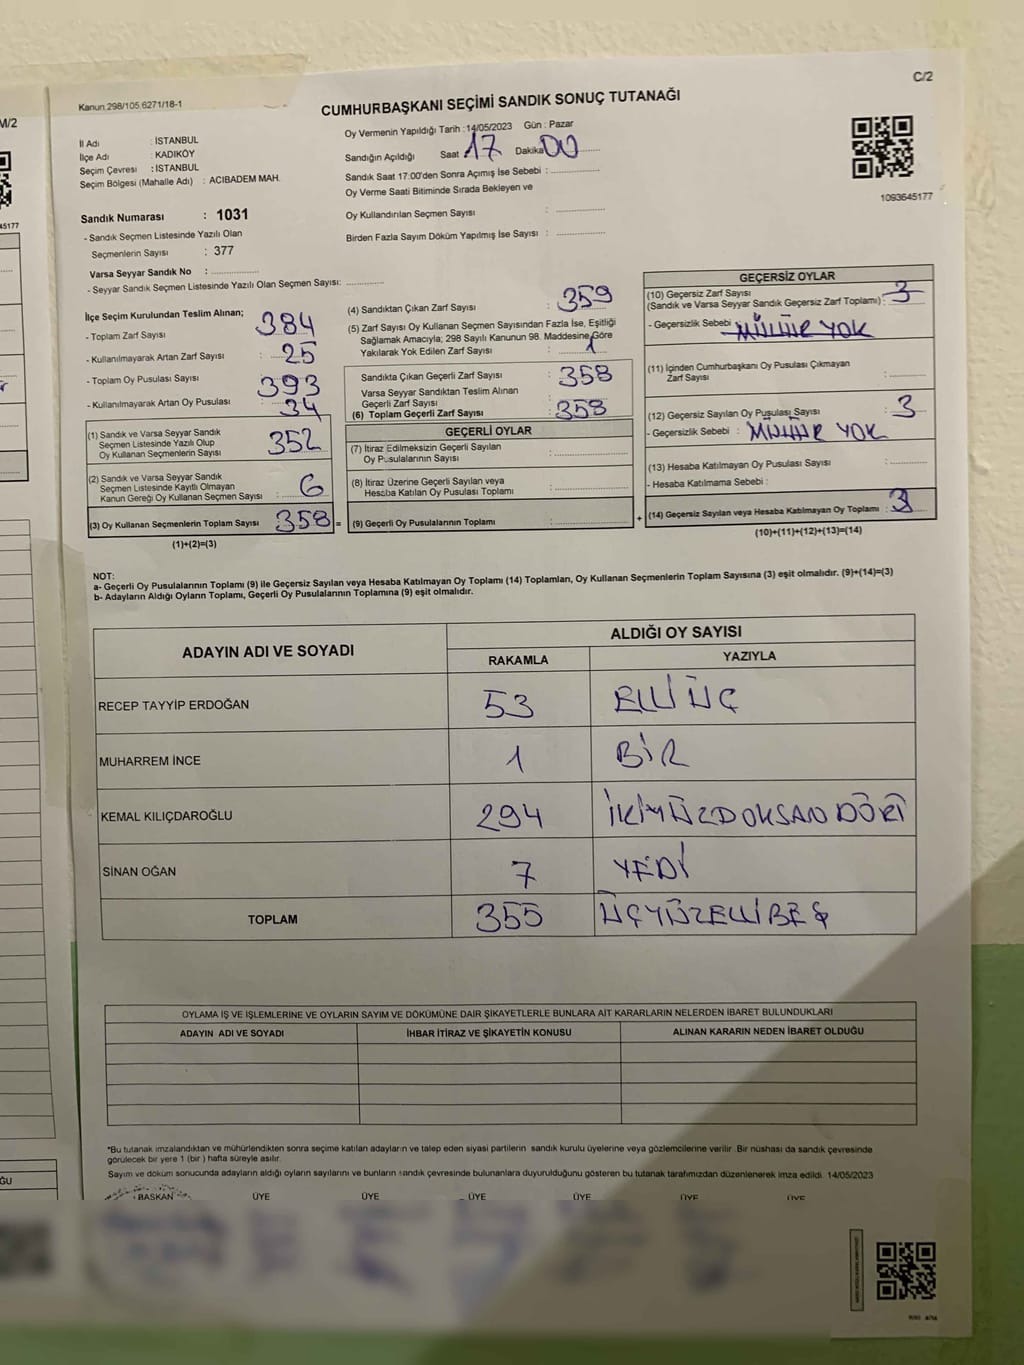 C/2
Kanun 298/105 6271/18-1
CUMHURBAŞKANI SEÇİMİ SANDIK SONUÇ TUTANAĞI
İl Adı : İSTANBUL
İlçe Adı : KADIKÖY
Seçim Çevresi : İSTANBUL
Seçim Bölgesi (Mahalle Adı) : ACIBADEM MAH.
Oy Vermenin Yapıldığı Tarih : 14/05/2023 Gün : Pazar
Sandığın Açıldığı Saat 17 Dakika 00
Sandık Saat 17:00'den Sonra Açımış İse Sebebi :
Oy Verme Saati Bitiminde Sırada Bekleyen ve
Oy Kullandırılan Seçmen Sayısı :
Birden Fazla Sayım Döküm Yapılmış İse Sayısı :
1093645177
Sandık Numarası : 1031
- Sandık Seçmen Listesinde Yazılı Olan
Seçmenlerin Sayısı : 377
Varsa Seyyar Sandık No :
- Seyyar Sandık Seçmen Listesinde Yazılı Olan Seçmen Sayısı:
İlçe Seçim Kurulundan Teslim Alınan;
- Toplam Zarf Sayısı : 384
- Kullanılmayarak Artan Zarf Sayısı : 25
- Toplam Oy Pusulası Sayısı : 393
- Kullanılmayarak Artan Oy Pusulası : 34
(1) Sandık ve Varsa Seyyar Sandık
Seçmen Listesinde Yazılı Olup
Oy Kullanan Seçmenlerin Sayısı : 352
(2) Sandık ve Varsa Seyyar Sandık
Seçmen Listesinde Kayıtlı Olmayan
Kanun Gereği Oy Kullanan Seçmen Sayısı : 6
(3) Oy Kullanan Seçmenlerin Toplam Sayısı : 358 =
(1)+(2)=(3)
(4) Sandıktan Çıkan Zarf Sayısı : 359
(5) Zarf Sayısı Oy Kullanan Seçmen Sayısından Fazla İse, Eşitliği
Sağlamak Amacıyla; 298 Sayılı Kanunun 98. Maddesine Göre
Yakılarak Yok Edilen Zarf Sayısı : 1
Sandıkta Çıkan Geçerli Zarf Sayısı : 358
Varsa Seyyar Sandıktan Teslim Alınan
Geçerli Zarf Sayısı :
(6) Toplam Geçerli Zarf Sayısı : 358
GEÇERLİ OYLAR
(7) İtiraz Edilmeksizin Geçerli Sayılan
Oy Pusulalarının Sayısı :
(8) İtiraz Üzerine Geçerli Sayılan veya
Hesaba Katılan Oy Pusulası Toplamı :
(9) Geçerli Oy Pusulalarının Toplamı : +
GEÇERSİZ OYLAR
(10) Geçersiz Zarf Sayısı
(Sandık ve Varsa Seyyar Sandık Geçersiz Zarf Toplamı) : 3
- Geçersizlik Sebebi : MÜHÜR YOK
(11) İçinden Cumhurbaşkanı Oy Pusulası Çıkmayan
Zarf Sayısı :
(12) Geçersiz Sayılan Oy Pusulası Sayısı : 3
- Geçersizlik Sebebi : MÜHÜR YOK
(13) Hesaba Katılmayan Oy Pusulası Sayısı :
- Hesaba Katılmama Sebebi :
(14) Geçersiz Sayılan veya Hesaba Katılmayan Oy Toplamı : 3
(10)+(11)+(12)+(13)=(14)
NOT:
a- Geçerli Oy Pusulalarının Toplamı (9) ile Geçersiz Sayılan veya Hesaba Katılmayan Oy Toplamı (14) Toplamları, Oy Kullanan Seçmenlerin Toplam Sayısına (3) eşit olmalıdır. (9)+(14)=(3)
b- Adayların Aldığı Oyların Toplamı, Geçerli Oy Pusulalarının Toplamına (9) eşit olmalıdır.
ADAYIN ADI VE SOYADI
ALDIĞI OY SAYISI
RAKAMLA YAZIYLA
RECEP TAYYİP ERDOĞAN 53 ELLİ ÜÇ
MUHARREM İNCE 1 BİR
KEMAL KILIÇDAROĞLU 294 İKİYÜZDOKSAN DÖRT
SİNAN OĞAN 7 YEDİ
TOPLAM 355 ÜÇYÜZELLİBEŞ
OYLAMA İŞ VE İŞLEMLERİNE VE OYLARIN SAYIM VE DÖKÜMÜNE DAİR ŞİKAYETLERLE BUNLARA AİT KARARLARIN NELERDEN İBARET BULUNDUKLARI
ADAYIN ADI VE SOYADI İHBAR İTİRAZ VE ŞİKAYETİN KONUSU ALINAN KARARIN NEDEN İBARET OLDUĞU
*Bu tutanak imzalandıktan ve mühürlendikten sonra seçime katılan adayların ve talep eden siyasi partilerin sandık kurulu üyelerine veya gözlemcilerine verilir. Bir nüshası da sandık çevresinde
görülecek bir yere 1 (bir ) hafta süreyle asılır.
Sayım ve döküm sonucunda adayların aldığı oyların sayılarını ve bunların sandık çevresinde bulunanlara duyurulduğunu gösteren bu tutanak tarafımızdan düzenlenerek imza edildi. 14/05/2023
BAŞKAN ÜYE ÜYE ÜYE ÜYE ÜYE ÜYE
M/2
45177
ĞU